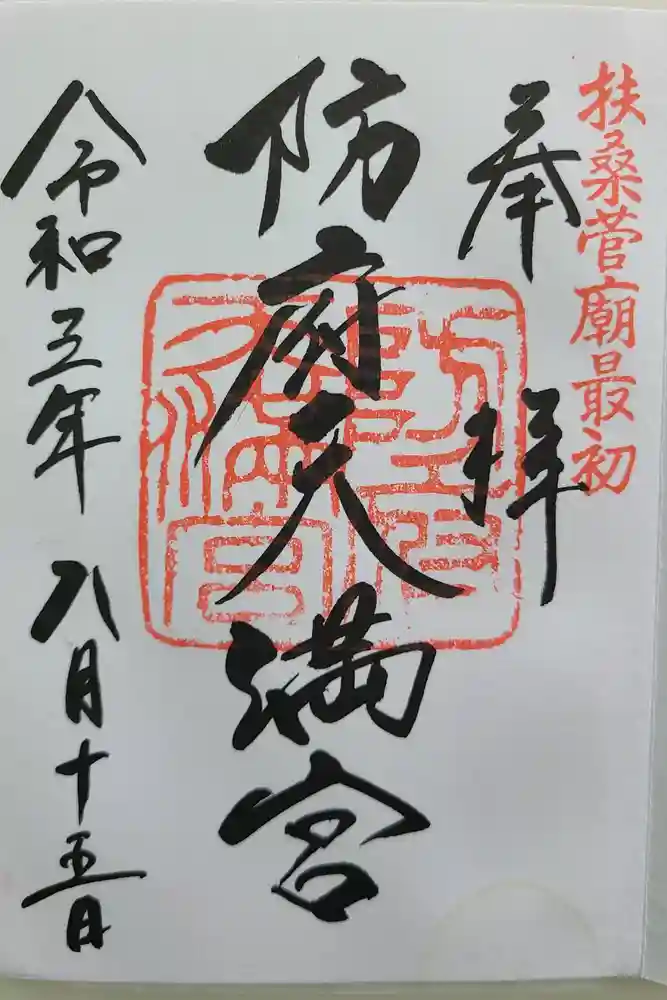 扶桑菅廟最初
奉拝
防府天満宮
令和三年 八月十五日